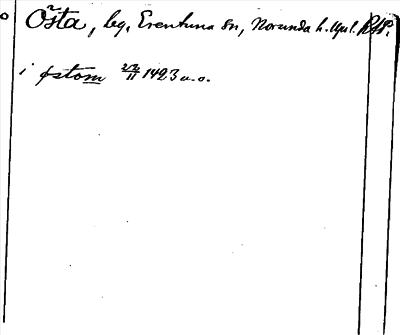 Östa, beg. Erentuna sn, Norunda h. Upl. RAP.
i østom 22/11 1423 a.o.